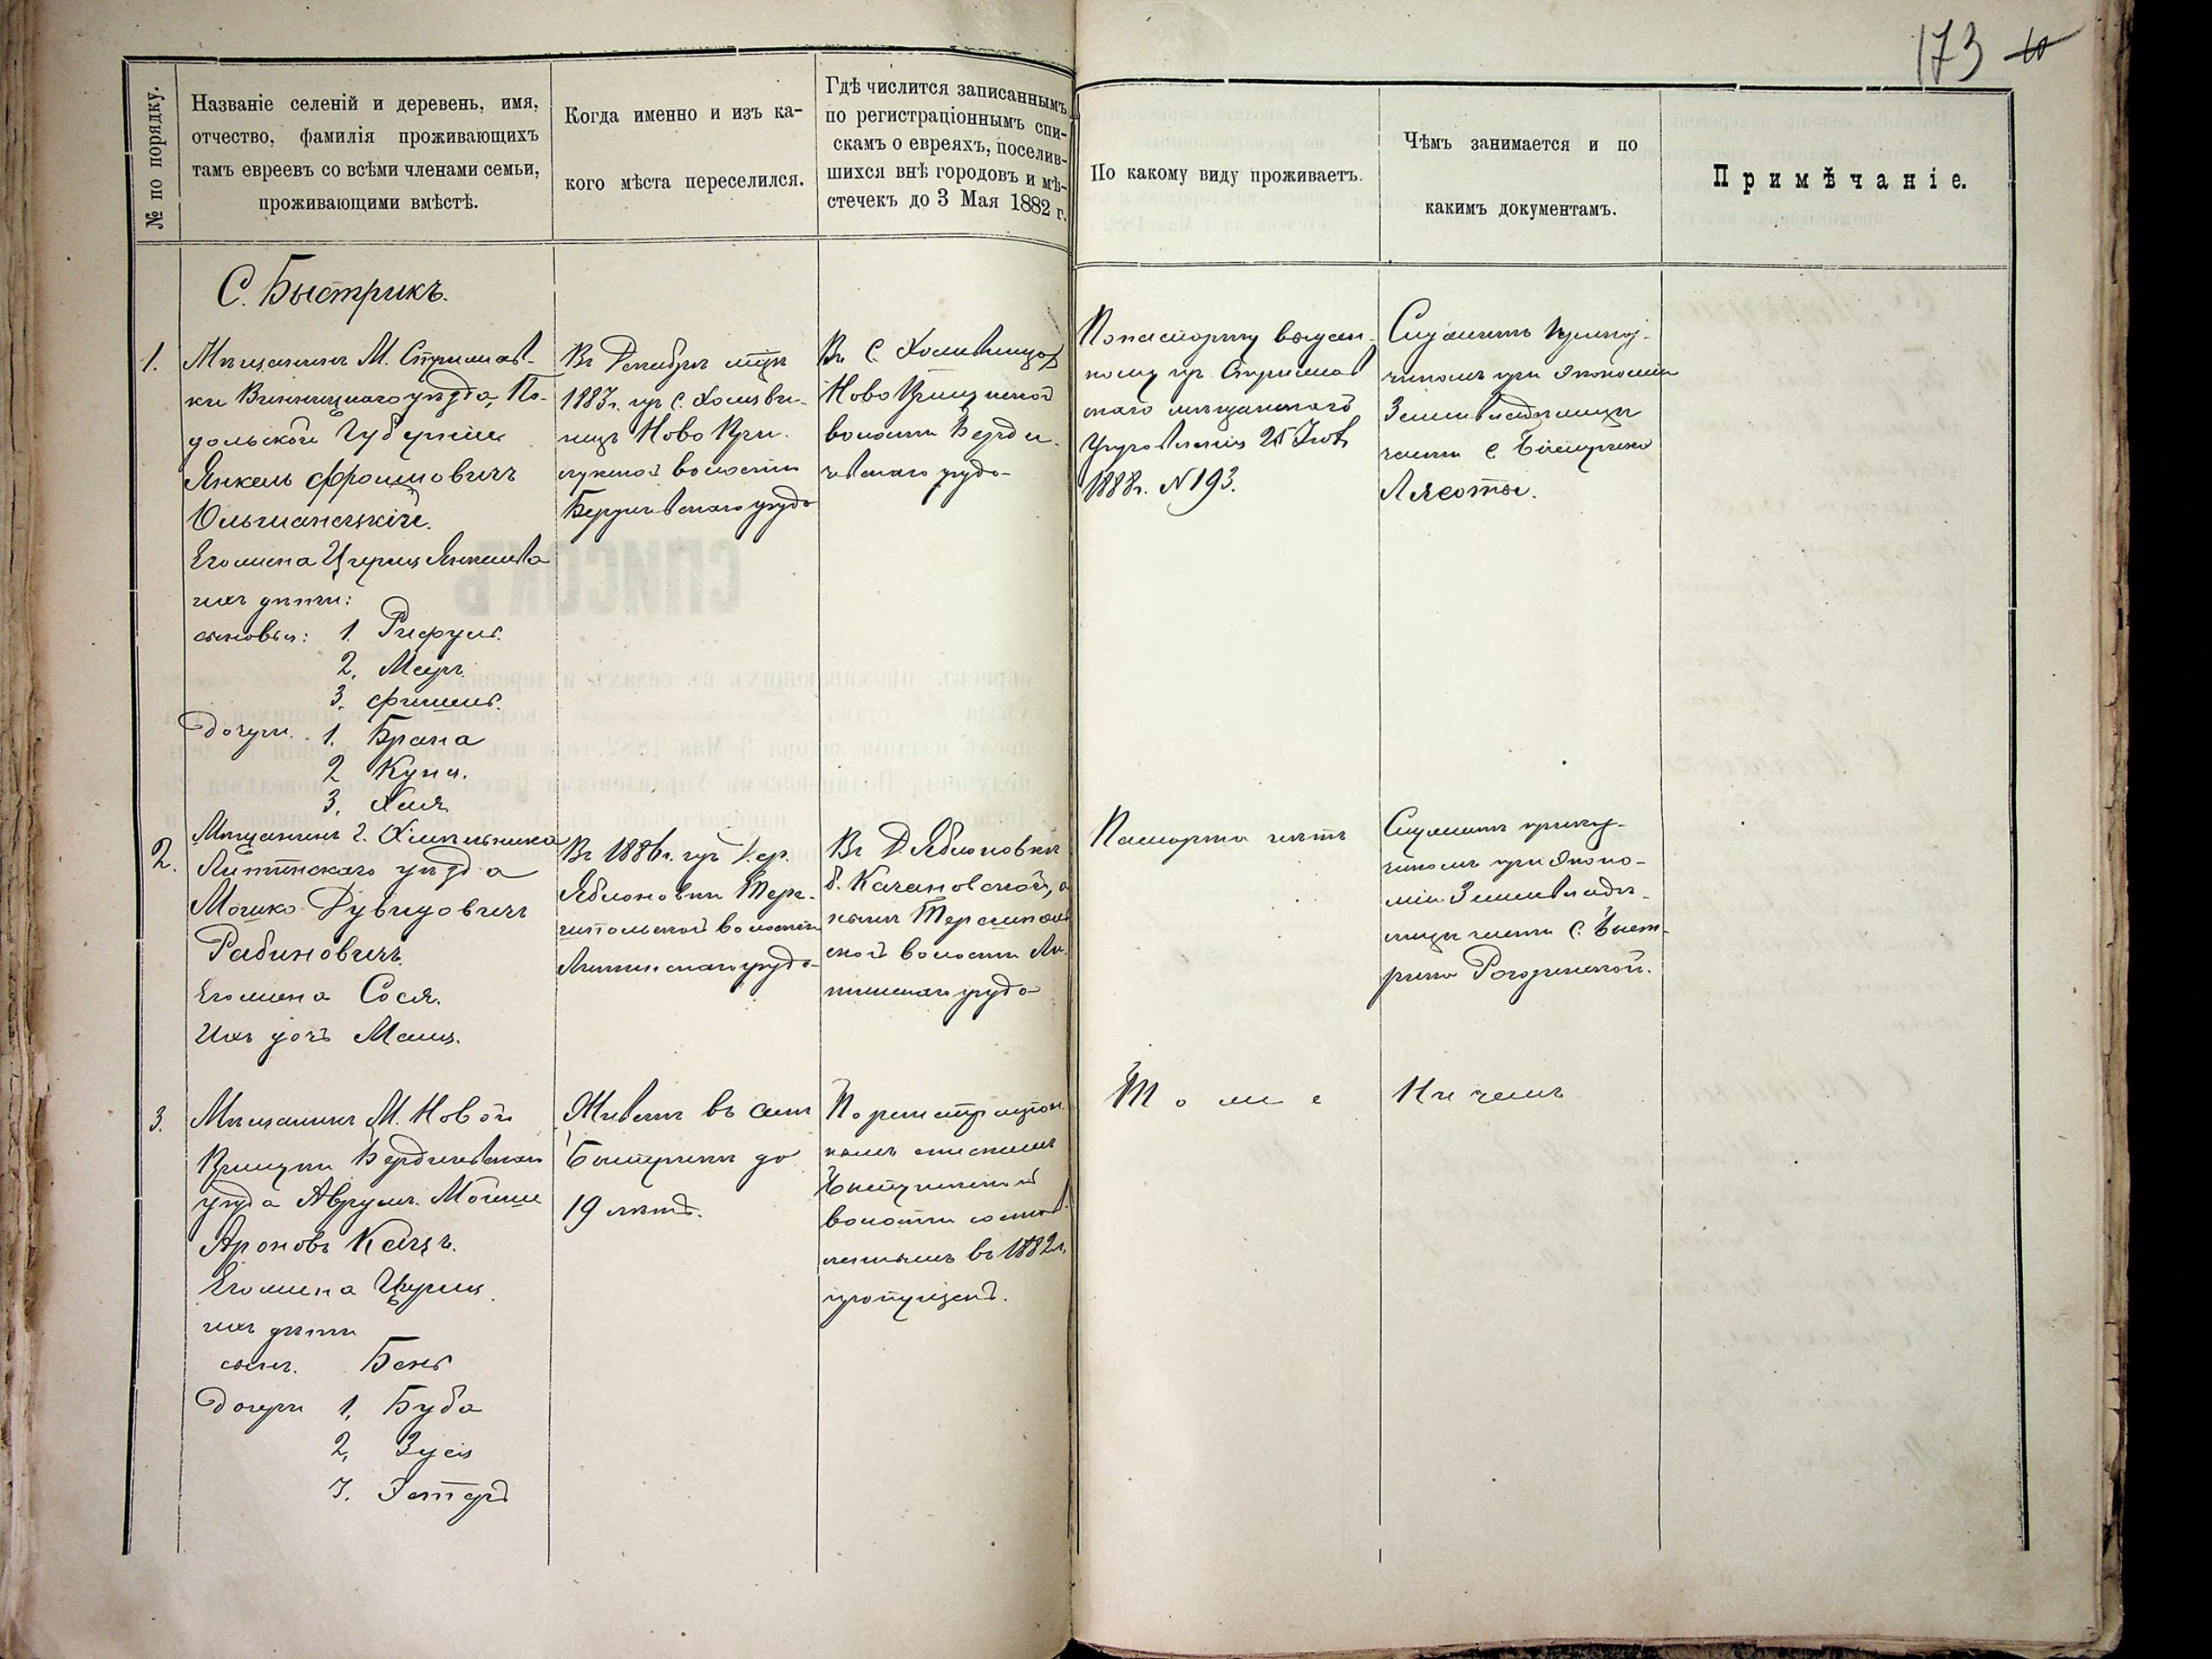 173 10
№ по порядку.
Названіе селеній и деревень, имя,
отчество, фамилія проживающихъ
тамъ евреевъ со всѣми членами семьи,
проживающими вмѣстѣ.
Когда именно и изъ ка-
кого мѣста переселился.
Гдѣ числится записаннымъ
по регистраціоннымъ спи-
скамъ о евреяхъ, поселив-
шихся внѣ городовъ и мѣ-
стечекъ до 3 Мая 1882 г.
По какому виду проживаетъ.
Чѣмъ занимается и по
какимъ документамъ.
Примѣчаніе.
С. Быстрикъ.
1.
Мѣщанинъ М. Стрижав-
ки Винницкаго уѣзда, По-
дольской Губерніи
Янкель Фроимовичъ
Ольшанецкій.
Его жена Янкелева
ихъ дѣти:
сыновья: 1. Рафуль.
2. Меер.
3. Фишель.
Дочери. 1. Брана
2 Куня.
3. Хая
Въ Декабрѣ мѣсяцѣ
1883 г. изъ С.
Ново При-
лукской волости
Бердичевскаго уѣзда
Въ С.
Ново Прилукской
волости Берди-
чевскаго уѣзда
По паспорту выдан-
ному изъ Стрижав
скаго мѣщанскаго
Управленія 25
1888 г. № 193.
Служитъ прикащ-
чикомъ при экономіи
Землевладѣлицы
части с. Быстрика
Лясоты.
2.
Мѣщанинъ г. Хмѣльника
Литинскаго уѣзда
Мошко Дувидовичъ
Рабиновичъ.
Его жена Сося.
Ихъ дочь
Въ 1886 г. изъ Дер.
Яблоновки
волости
Литинскаго уѣзда
Въ Д. Яблоновкѣ
б. Качановской, а
нынѣ
ской волости Ли-
тинскаго уѣзда
Паспорта нѣтъ
Служитъ прикащ-
чикомъ при Эконо-
міи Землевладѣ-
лицы части С. Быст-
рика Рогозинской.
3.
Мѣщанинъ М. Новой
Прилуки Бердичевскаго
уѣзда Аврумъ Мошко
Ароновъ Кацъ.
Его жена
ихъ дѣти
сынъ. Бень
Дочери 1. Буба
2. Зуся
3. Эстеръ
Живетъ въ селѣ
Быстрикѣ до
19 лѣтъ.
По регистраціон-
нымъ спискамъ
Быстрикской
волости состав-
леннымъ въ 1882 г.
пропущенъ.
Тоже
Ничемъ